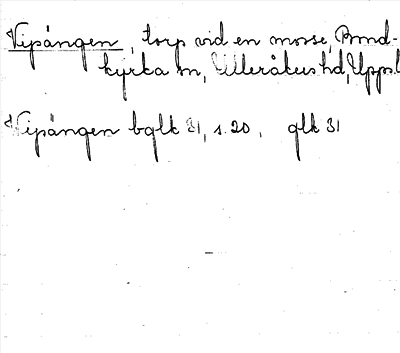 Vipängen, torp vid en mosse, Bond-
kyrka sn, Ulleråkers hd, Uppsl
Vipängen bglk 31, s. 20, glk 31